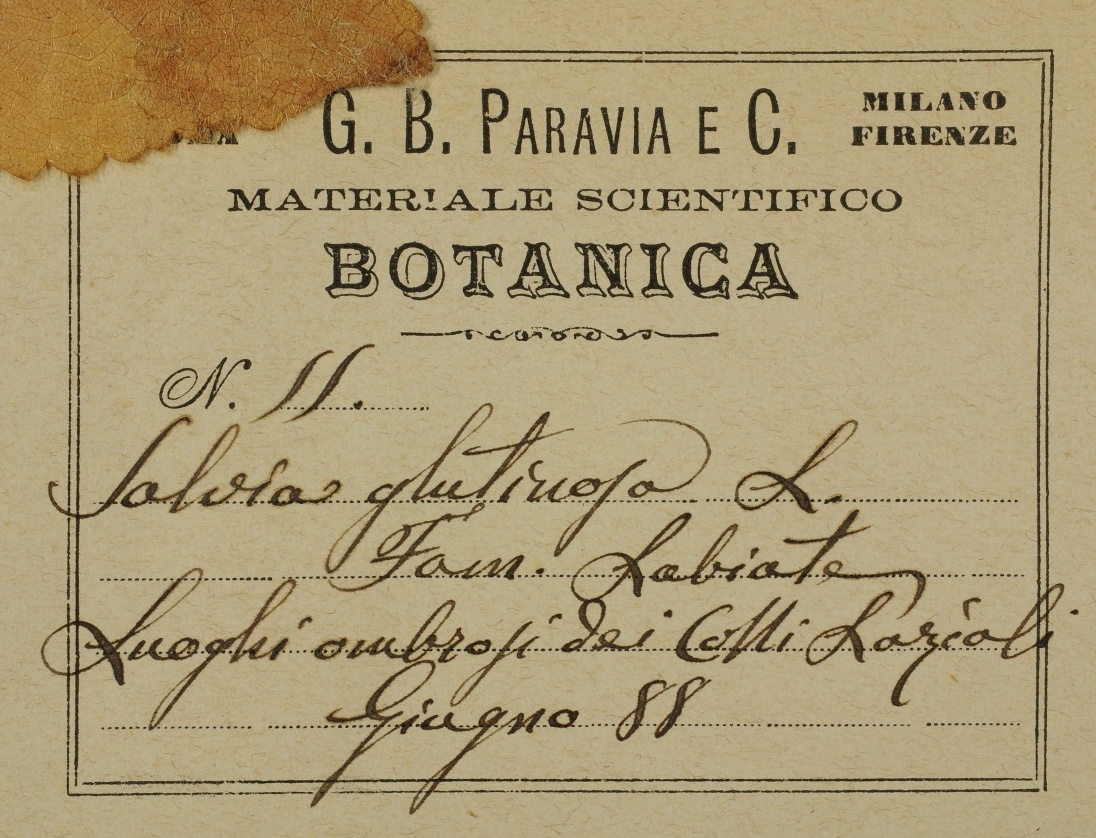 G. B. PARAVIA E C.
MILANO
FIRENZE
MATERIALE SCIENTIFICO
BOTANICA
N. 11.
Salvia glutinosa L.
Fam. Labiate
Luoghi ombrosi dei Colli Laziali
Giugno 88